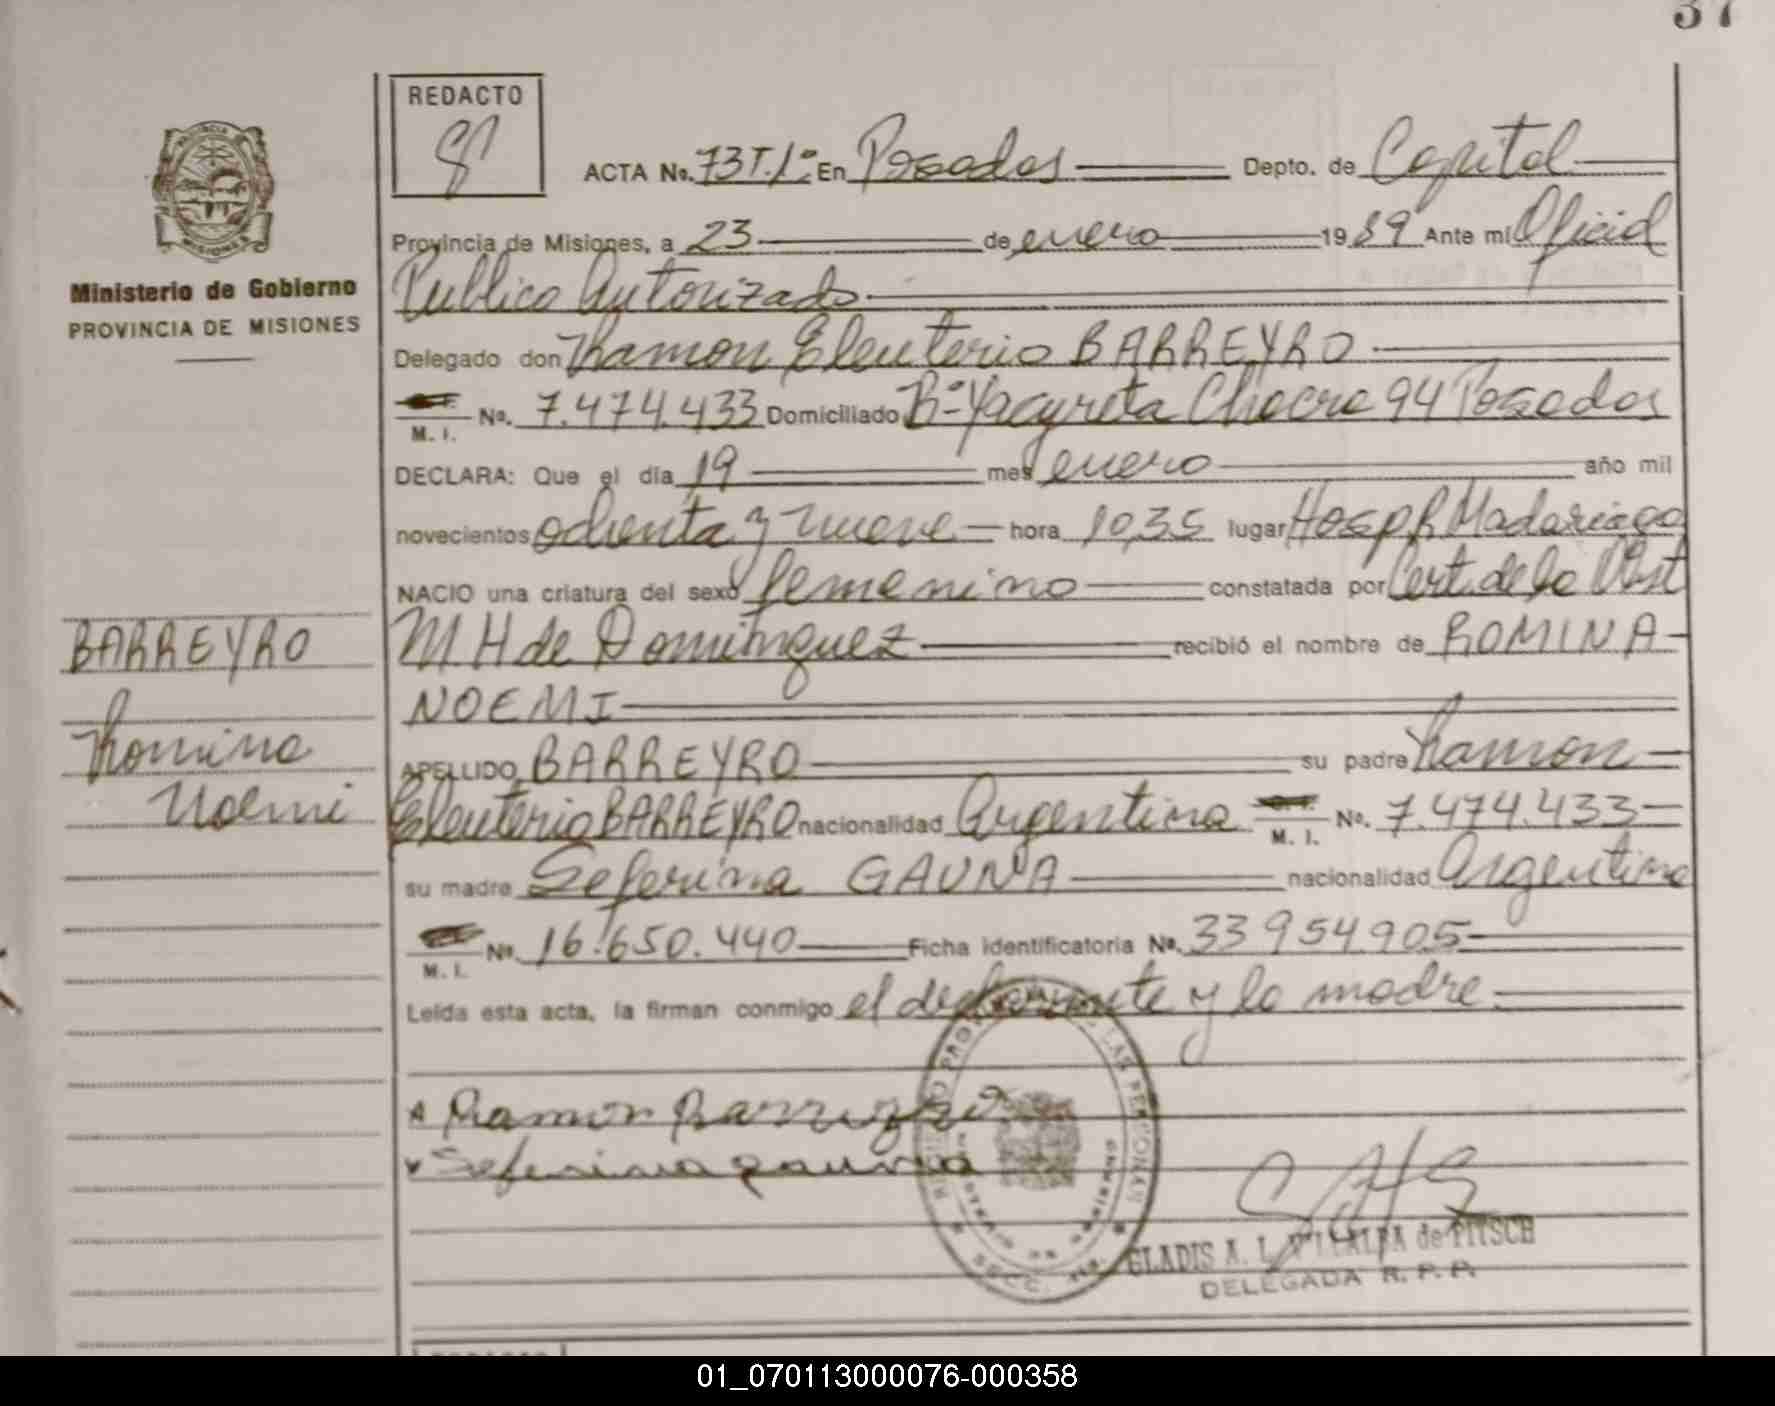 37
REDACTO
PROVINCIA DE
MISIONES
Ministerio de Gobierno
PROVINCIA DE MISIONES
ACTA No. 73 T. 1° En Posadas Depto. de Capital
Provincia de Misiones, a 23 de enero 1989 Ante mi Oficial
Publico Autorizado
Delegado don Ramon Eleuterio BARREYRO
M. I. No. 7.474.433 Domiciliado B° Yacyreta Chacra 94 Posadas
DECLARA: Que el día 19 mes enero año mil
novecientos ochenta y nueve hora 10,35 lugar Hosp R Madariaga
NACIO una criatura del sexo femenino constatada por Cert. de la Obst
M H de Dominguez recibió el nombre de ROMINA
NOEMI
APELLIDO BARREYRO su padre Ramon
Eleuterio BARREYRO nacionalidad Argentina M. I. No. 7.474.433
su madre Seferina GAUNA nacionalidad Argentina
M. I. No. 16.650.440 Ficha identificatoria No. 33954905
Leída esta acta, la firman conmigo el declarante y la madre.
BARREYRO
Romina
Noemi
Ramon Barreyro
Seferina gauna
GLADIS A. L. VILLALBA de PITSCH
DELEGADA R. P. P.
01_070113000076-000358